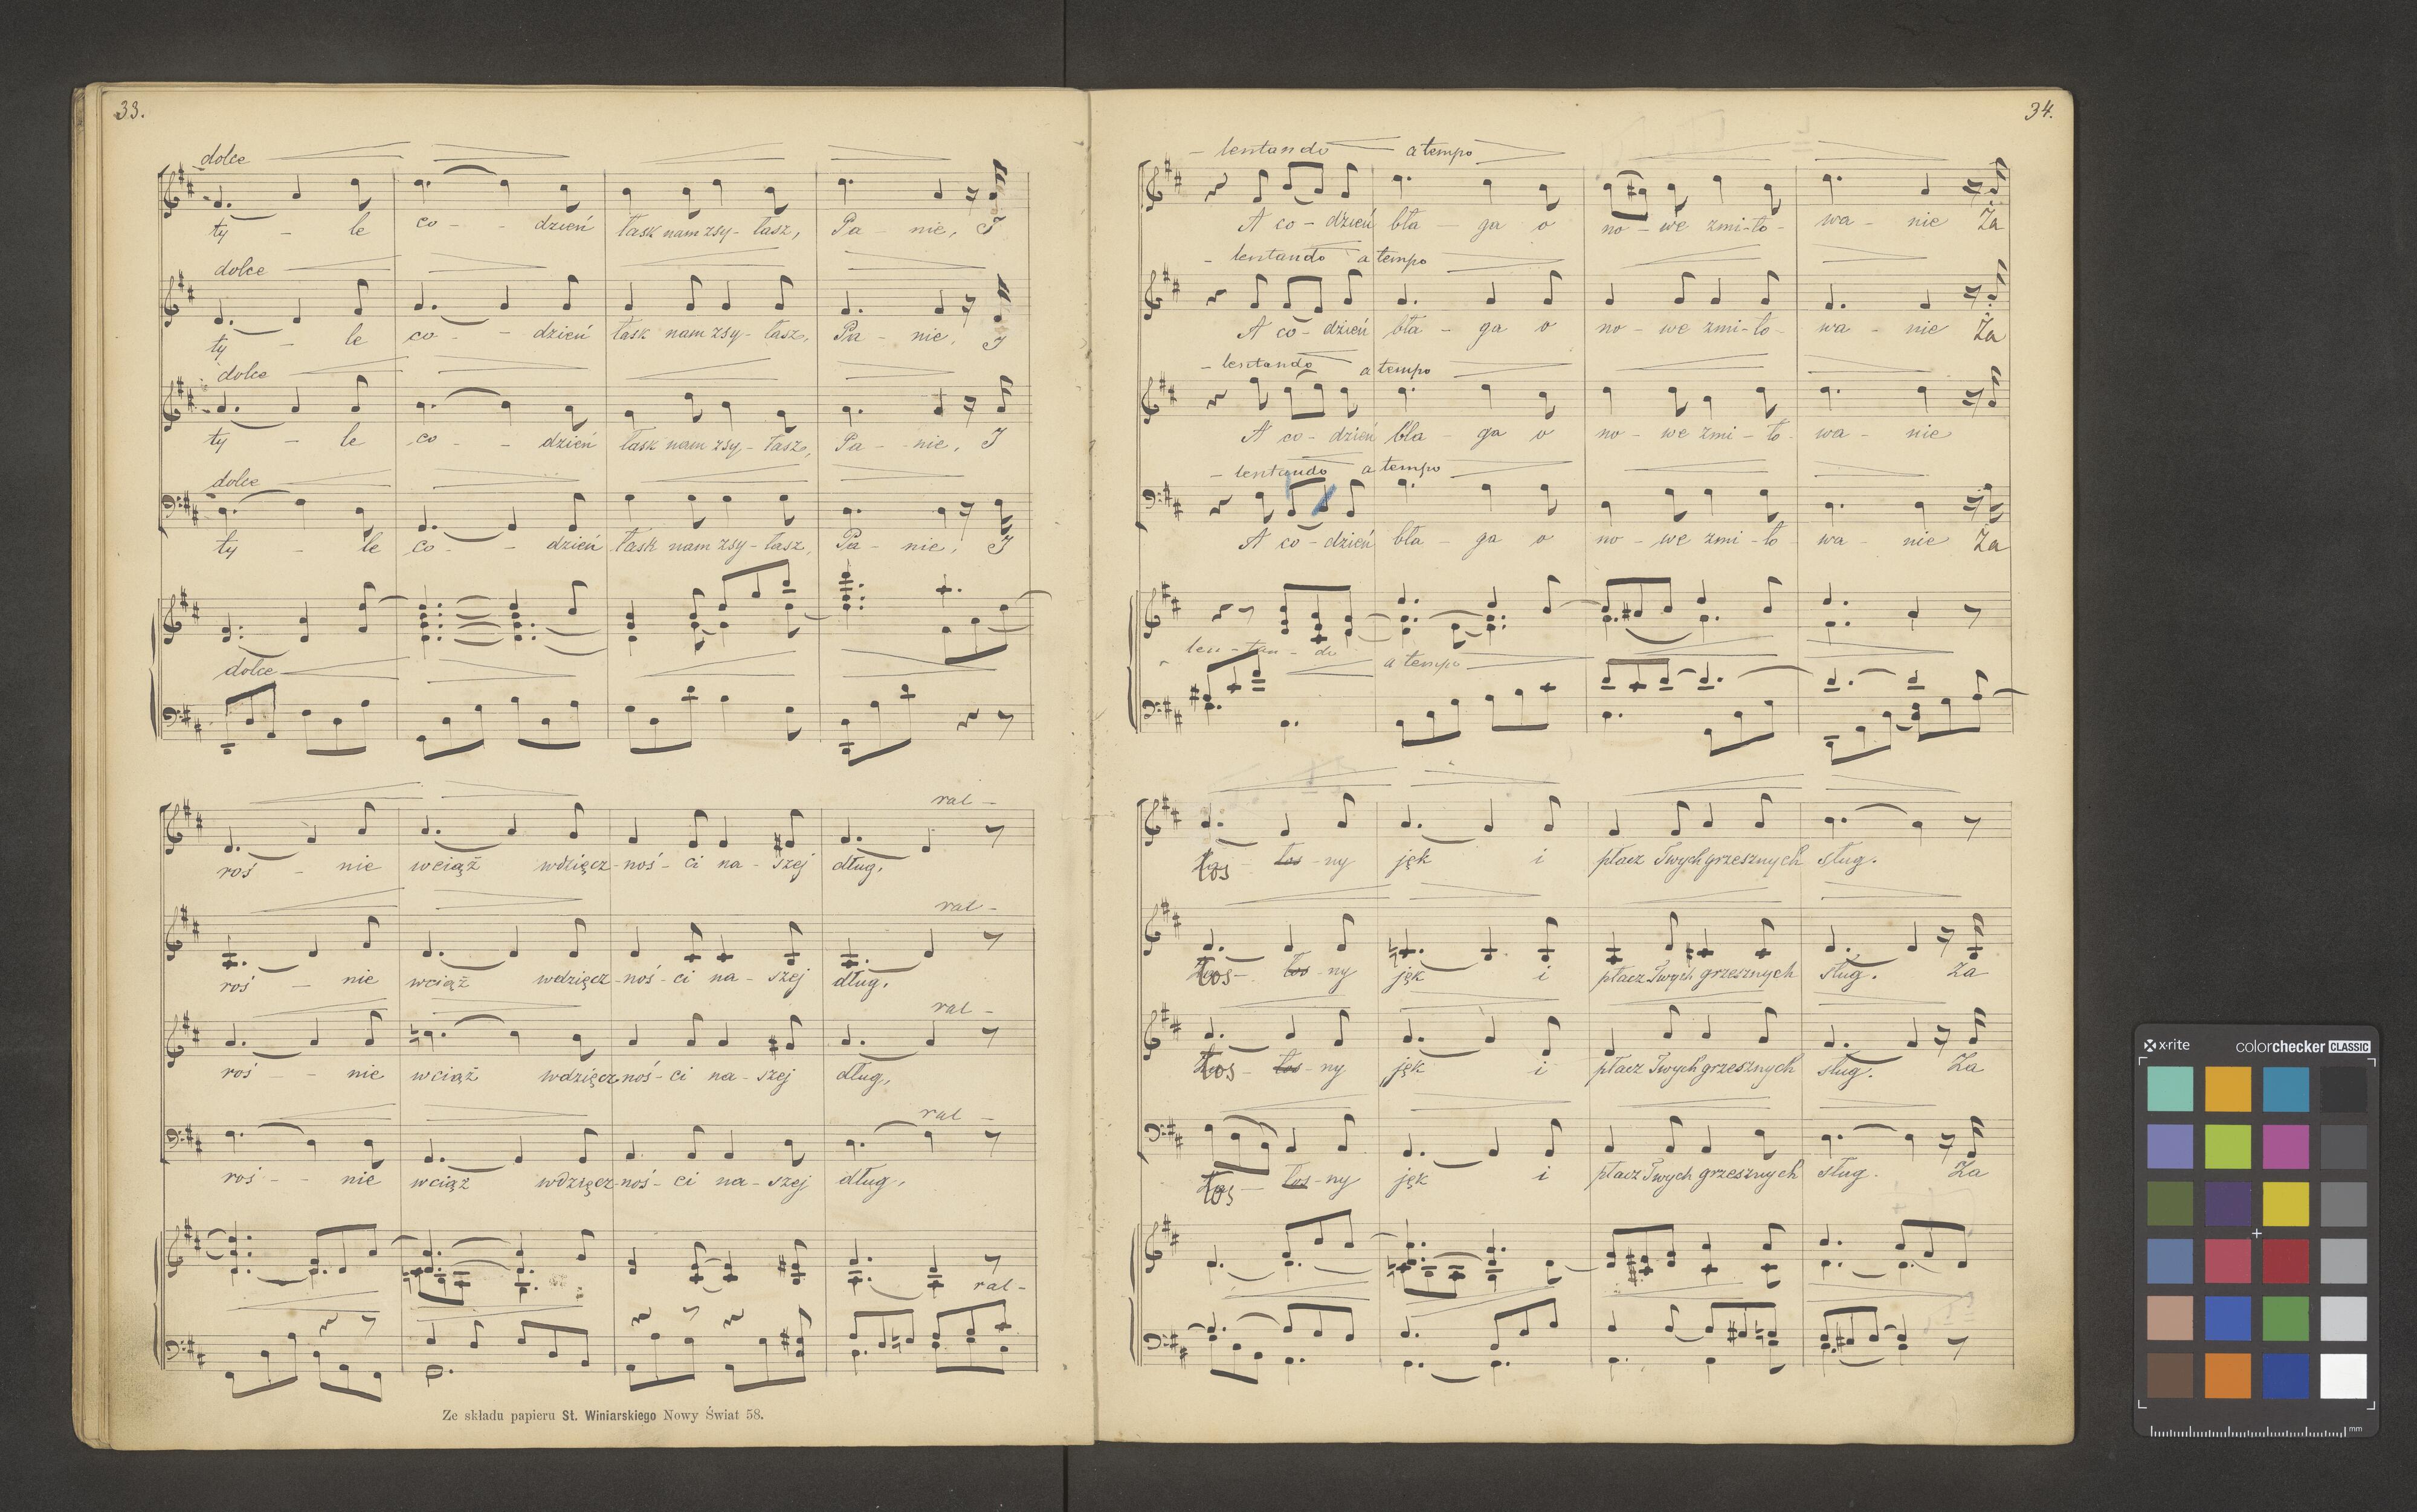 33.
dolce
ty - le co - - dzień łask nam zsy - łasz, Pa - nie, I
dolce
ty - le co - - dzień łask nam zsy - łasz, Pa - nie, I
dolce
ty - le co - - dzień łask nam zsy - łasz, Pa - nie, I
dolce
ty - le co - - dzień łask nam zsy - łasz, Pa - nie, I
dolce
ral -
roś - nie wciąż wdzięcz - noś - ci na - szej dług,
ral -
roś - nie wciąż wdzięcz - noś - ci na - szej dług,
ral -
roś - - nie wciąż wdzięcz noś - ci na - szej dług,
ral -
roś - - nie wciąż wdzięcz - noś - ci na - szej dług,
ral -
Ze składu papieru St. Winiarskiego Nowy Świat 58.
34.
- lentando a tempo
A co - dzień bła - ga o no - we zmi - ło - wa - nie Ża
- lentando a tempo
A co - dzień bła - ga o no - we zmi - ło - wa - nie Ża
- lentando a tempo
A co - dzień bła - ga o no - we zmi - ło - wa - nie
- lentando a tempo
A co - dzień bła - ga o no - we zmi - ło - wa - nie Ża
len - tan - do a tempo
łos - ny jęk i płacz Twych grzesznych sług.
łos - ny jęk i płacz Twych grzesznych sług. Za
łos - ny jęk i płacz Twych grzesznych sług. Za
łos - ny jęk i płacz Twych grzesznych sług. Za
x-rite colorchecker CLASSIC
mm